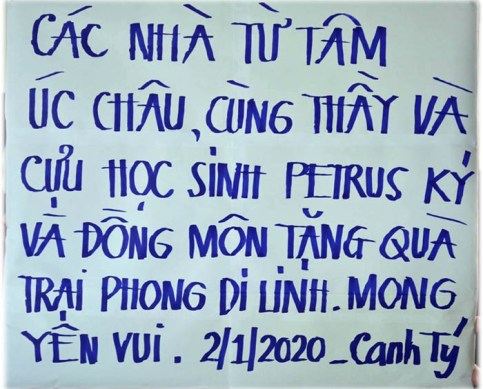 CÁC NHÀ TỪ TÂM
ÚC CHÂU, CÙNG THẦY VÀ
CỰU HỌC SINH PETRUS KÝ
VÀ ĐỒNG MÔN TẶNG QUÀ
TRẠI PHONG DI LINH. MONG
YÊN VUI. 2/1/2020_Canh Tý